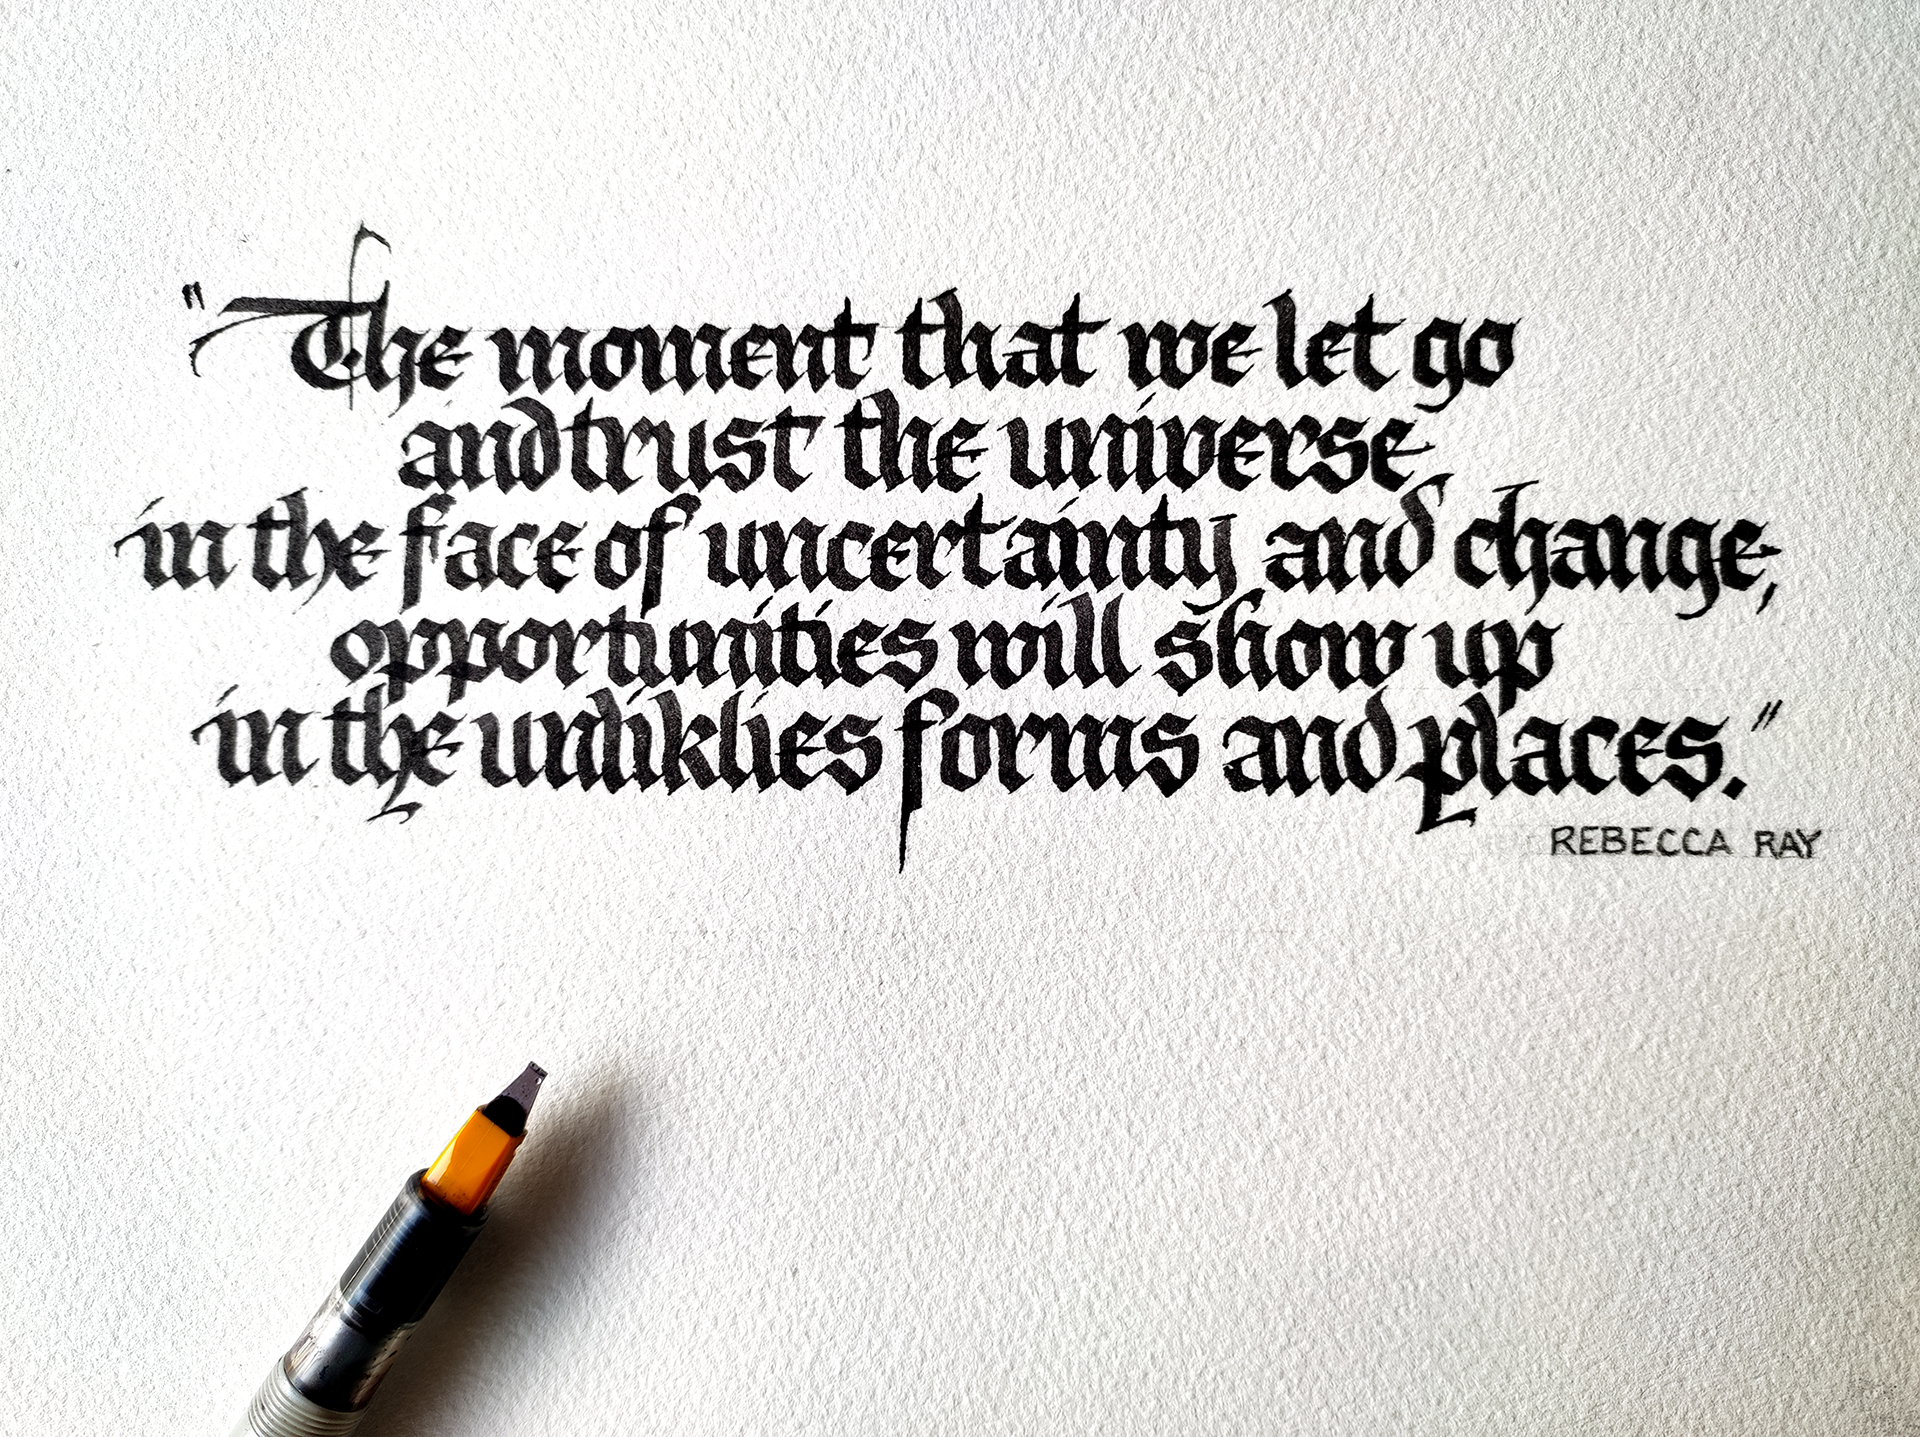 "The moment that we let go
and trust the universe
in the face of uncertainty and change,
opportunities will show up
in the unliklies forms and places."
REBECCA RAY